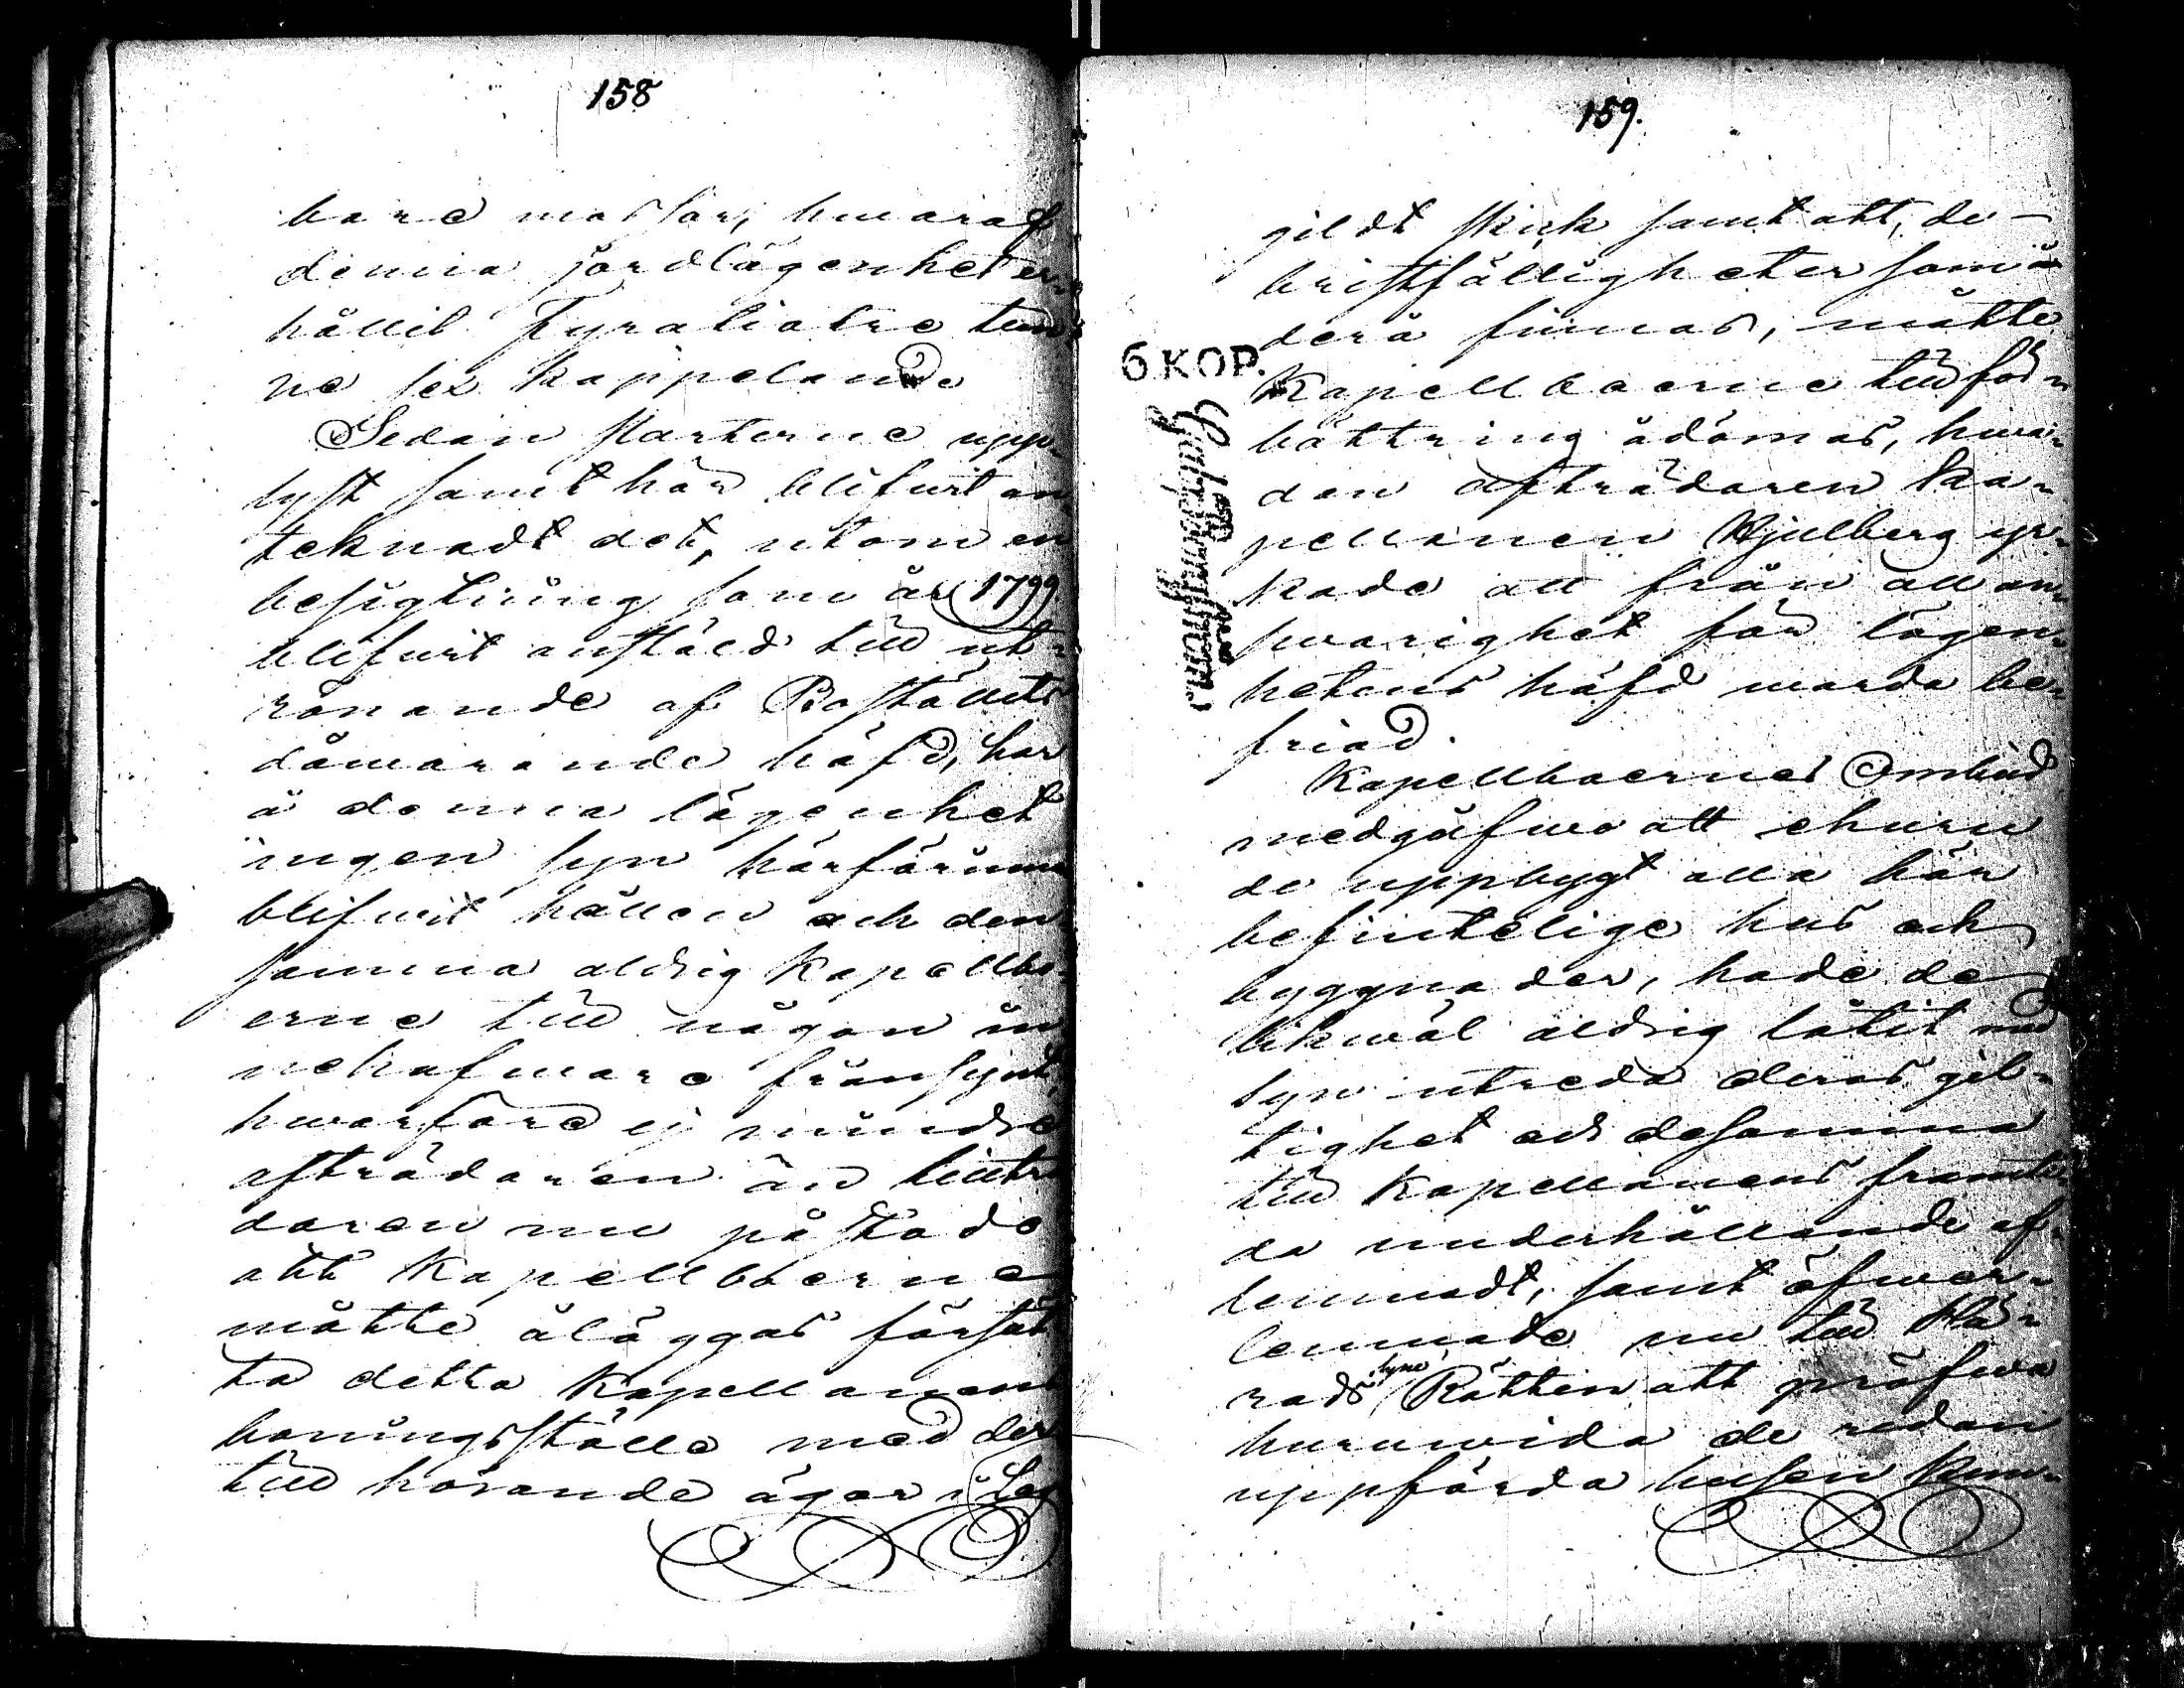 158
bara mossar, hwaraf
denna jordlägenhet er-
hållit Fyratiotre tun-
ne sex kappeland
Sedan Parterne upp-
lyst samt här blifwit an-
teknadt det, utom en
besigtning som år 1799
blifwit anstäld till ut-
rönande af Boställets
dåwarande häfd, har
å denna lägenhet
ingen syn härförinnan
blifwit hållen och den
samma aldrig Kapellbo-
erne till någon in-
nehafware frånsynt,
hwarföre ej mindre
afträdaren än tillträ
daren nu påstådo
att Kapellboerne
måtte åläggas försät
ta detta Kapellanens
boningsställe med der
till hörande ägor i Lag
159.
gildt skick samt att, de
bristfälligheter som
derå finnas, måtte
6 KOP.
Kapellboerne till för-
bättring ådömas, hwar-
dan afträdaren Kaa-
pellanen Hjulberg yr-
kade att från all an-
swarighet för lägen-
hetens häfd warda be-
friad.
Kapellboernes Ombud
medgåfwo att ehuru
de uppbygt alla här
befintelige hus och
byggnader, hade de
likwäl aldrig låtit med
syn utreda deras gil-
tighet och desamma
till Kapellanens framti-
da underhållande af-
lemnadt, samt öfwer-
lemnade nu till Hä-
rads syne Rätten att pröfwa
huruwida de redan
uppförda husen kun-